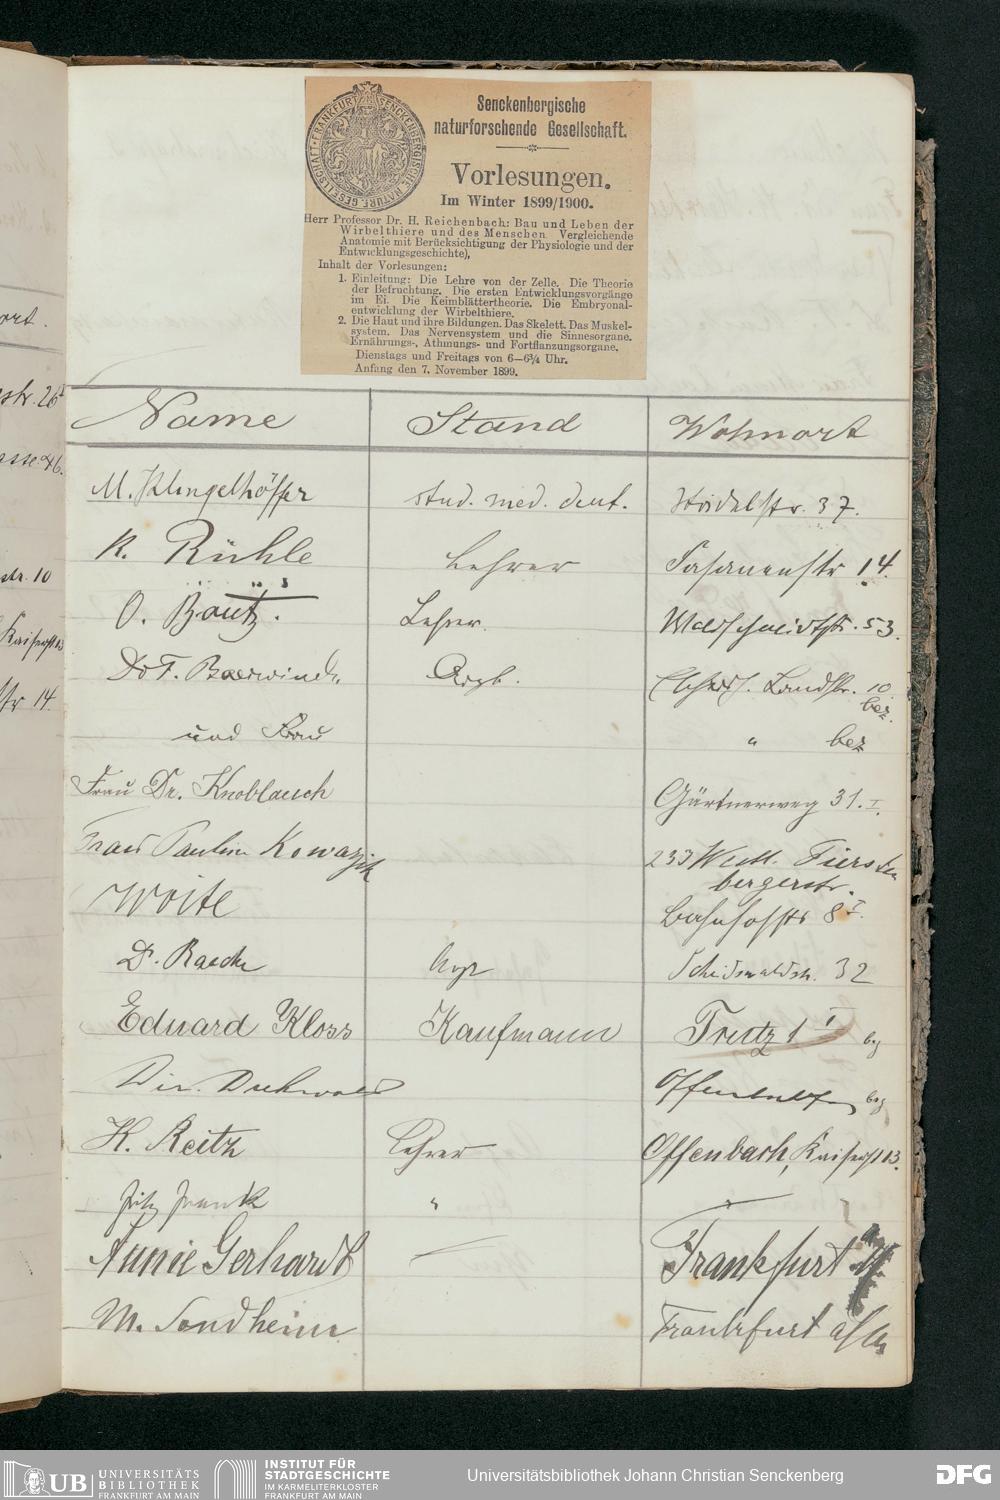 FRANKFURT A/M SENCKENBERGISCHE NATURF. GESELLSCHAFT
Senckenbergische
naturforschende Gesellschaft.
Vorlesungen.
Im Winter 1899/1900.
Herr Professor Dr. H. Reichenbach: Bau und Leben der
Wirbelthiere und des Menschen Vergleichende
Anatomie mit Berücksichtigung der Physiologie und der
Entwicklungsgeschichte),
Inhalt der Vorlesungen:
1. Einleitung: Die Lehre von der Zelle. Die Theorie
der Befruchtung. Die ersten Entwicklungsvorgänge
im Ei. Die Keimblättertheorie. Die Embryonal-
entwicklung der Wirbelthiere.
2. Die Haut und ihre Bildungen. Das Skelett. Das Muskel-
system. Das Nervensystem und die Sinnesorgane.
Ernährungs-, Athmungs- und Fortflanzungsorgane.
Dienstags und Freitags von 6—6¾ Uhr.
Anfang den 7. November 1899.
Name Stand Wohnort
M. Klingelhöffer stud. med. dent. 37.
K. Rühle Lehrer Fasanenstr 14.
O. Boutz. Lehrer. Waldschmidtstr. 53.
Dr F. Baerwind. Arzt. Landstr. 10.
bez.
und Frau " bez
Frau Dr. Knoblauch Gärtnerweg 31. I.
Frau Pauline Kowarzik 233
bergerstr.
Woite Bahnhofstr 8 I.
Dr. Raecke Arzt 32
Eduard Kloss Kaufmann Trutz 1 I bez
Dir. bez
K. Reitz Lehrer Offenbach, Kaiserst 113.
Fritz Frank " "
Annie Gerhardt Frankfurt a/M
M. Sondheim Frankfurt a/M
ort.
str. 26
asse 46.
str. 10
Kaiserst
str 14.
UB UNIVERSITÄTS
BIBLIOTHEK
FRANKFURT AM MAIN
INSTITUT FÜR
STADTGESCHICHTE
IM KARMELITERKLOSTER
FRANKFURT AM MAIN
Universitätsbibliothek Johann Christian Senckenberg
DFG